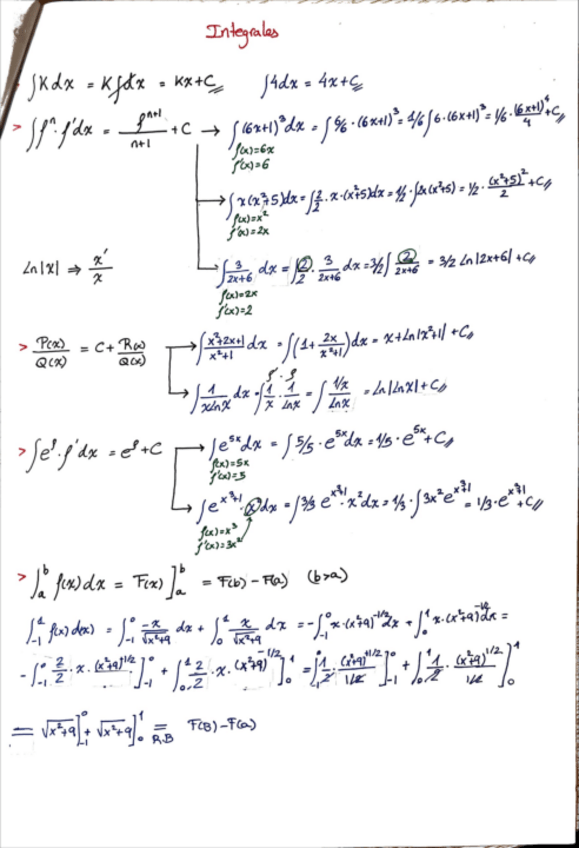 Integrales
∫Kdx = K∫dx = Kx+C ∫4dx = 4x+C
> ∫fⁿ·f'dx = fⁿ⁺¹/n+1 + C → ∫(6x+1)³dx = ∫6/6·(6x+1)³ = 1/6∫6·(6x+1)³ = 1/6·(6x+1)⁴/4 + C
f(x)=6x
f'(x)=6
→ ∫x(x²+5)dx = ∫2/2·x·(x²+5)dx = 1/2·∫2x(x²+5) = 1/2·(x²+5)²/2 + C
f(x)=x²
f'(x)=2x
Ln|x| ⇒ x'/x → ∫3/2x+6 dx = ∫2/2·3/2x+6 dx = 3/2∫2/2x+6 = 3/2 Ln|2x+6| + C
f(x)=2x
f'(x)=2
> P(x)/Q(x) = C+R(x)/Q(x) → ∫x²+2x+1/x²+1 dx = ∫(1+2x/x²+1)dx = x+Ln|x²+1| + C
→ ∫1/xLnx dx = ∫1/x·1/Lnx = ∫1/x/Lnx = Ln|Lnx| + C
> ∫eᶠ·f'dx = eᶠ+C → ∫e⁵ˣdx = ∫5/5·e⁵ˣdx = 1/5·e⁵ˣ+C
f(x)=5x
f'(x)=5
→ ∫eˣ³⁺¹·x²dx = ∫3/3 eˣ³⁺¹·x²dx = 1/3·∫3x²eˣ³⁺¹ = 1/3·eˣ³⁺¹+C
f(x)=x³
f'(x)=3x²
> ∫ₐᵇ f(x)dx = F(x)]ₐᵇ = F(b)-F(a) (b>a)
∫₋₁¹ f(x)d(x) = ∫₋₁⁰ -x/√x²+9 dx + ∫₀¹ x/√x²+9 dx = -∫₋₁⁰ x·(x²+9)⁻¹/²dx + ∫₀¹ x·(x²+9)⁻¹/²dx =
-∫₋₁⁰ 2/2·x·(x²+9)⁻¹/²]₋₁⁰ + ∫₀¹ 2/2·x·(x²+9)⁻¹/²]₀¹ = ∫₋₁⁰ 1/2·(x²+9)⁺¹/²/1/2]₋₁⁰ + ∫₀¹ 1/2·(x²+9)¹/²/1/2]₀¹
= √x²+9]₋₁⁰ + √x²+9]₀¹ = R.B F(B)-F(a)